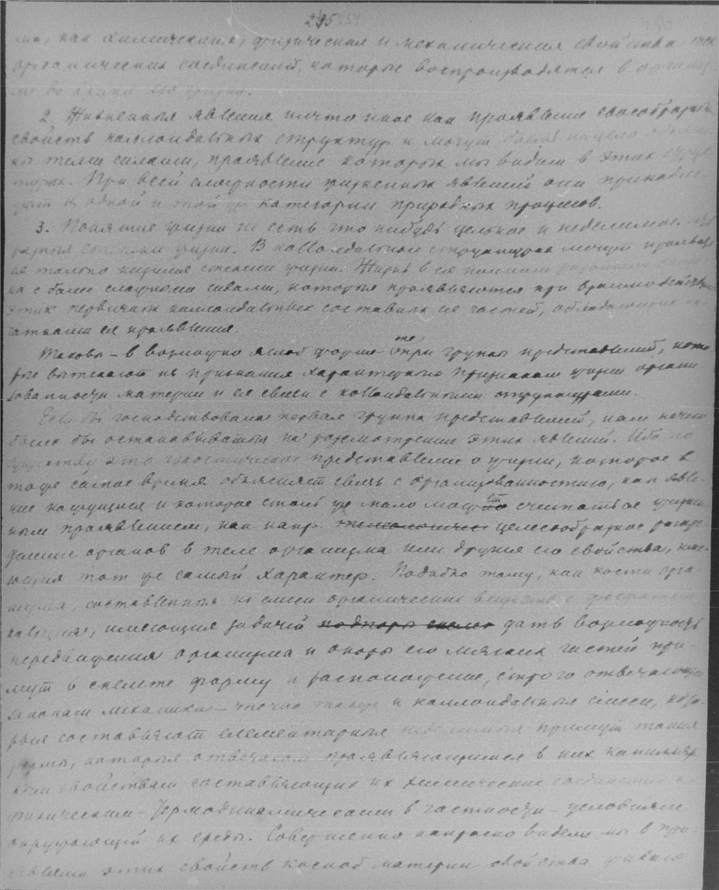 245
ми, как химические, физические и механические свойства тех
органических соединений, которые воспроизводятся в организ-
ме
2. Жизненныя явления ничто иное как проявление своеобразных
свойств коллоидальных структур и могут быть
ны теми силами, проявление которых мы видим в этих струк-
турах. При всей сложности жизненных явлений они принадле-
жат к одной и той же категории природных процессов.
3. Понятие жизни не есть что нибудь цельное и неделимое.
степени жизни. В коллоидальных структурах могут
ся только низшия степени жизни. Жизнь в ея полном
на с более сложными силами, которыя проявляются при взаимодействии
этих первичных коллоидальных составных ея частей, обладающих за-
датками ея проявления.
Таковы – в возможно ясной форме – те три группы представлений, кото-
рые вытекают из признания характерным признаком жизни органи-
зованности материи и ея связи с коллоидальными структурами.
Если бы господствовала первая группа представлений, нам нечего
было бы останавливаться на рассмотрении этих явлений. Ибо по
существу это агностическое представление о жизни, которое в
то же самое время объясняет связь с организованностью, как явле-
ние кажущееся и которое столь же мало может считаться жизнен-
ным проявлением, как напр. целесообразное распре-
деление органов в теле организма или другия его свойства, име-
ющия тот же самый характер. Подобно тому, как кости орга-
низма, составленныя из смеси органических веществ с фосфатами
кальция, имеющия задачей дать возможность
передвижения организма и опоры его мягких частей при-
мут в скелете форму и расположение, строго отвечающия
законам механики – точно также и коллоидальныя смеси, кото-
рыя составляют элементарныя неделимыя примут такия
формы, которыя отвечают проявляющимся в них
свойствам составляющих их химических соединений и
физическим – термодинамическим в частности – условиям
окружающей их среды. Совершенно напрасно видели мы в про-
явлении этих свойств косной материи свойства живого